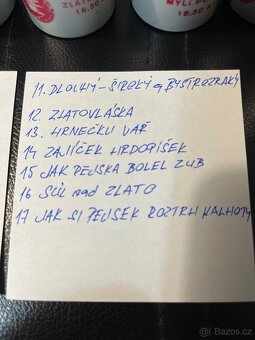 ZLAT
18,50
MYL: PO
18.50
11. DLOUHÝ - ŠIROKÝ a BYSTROZRAKÝ
12 ZLATOVLÁSKA
13. HRNEČKU VAŘ
14 ZAJÍČEK HRDOPÍŠEK
15 JAK PEJSKA BOLEL ZUB
16 SŮL nad ZLATO
17 JAK SI PEJSEK ROZTRH KALHOTY
Sbazoš.cz